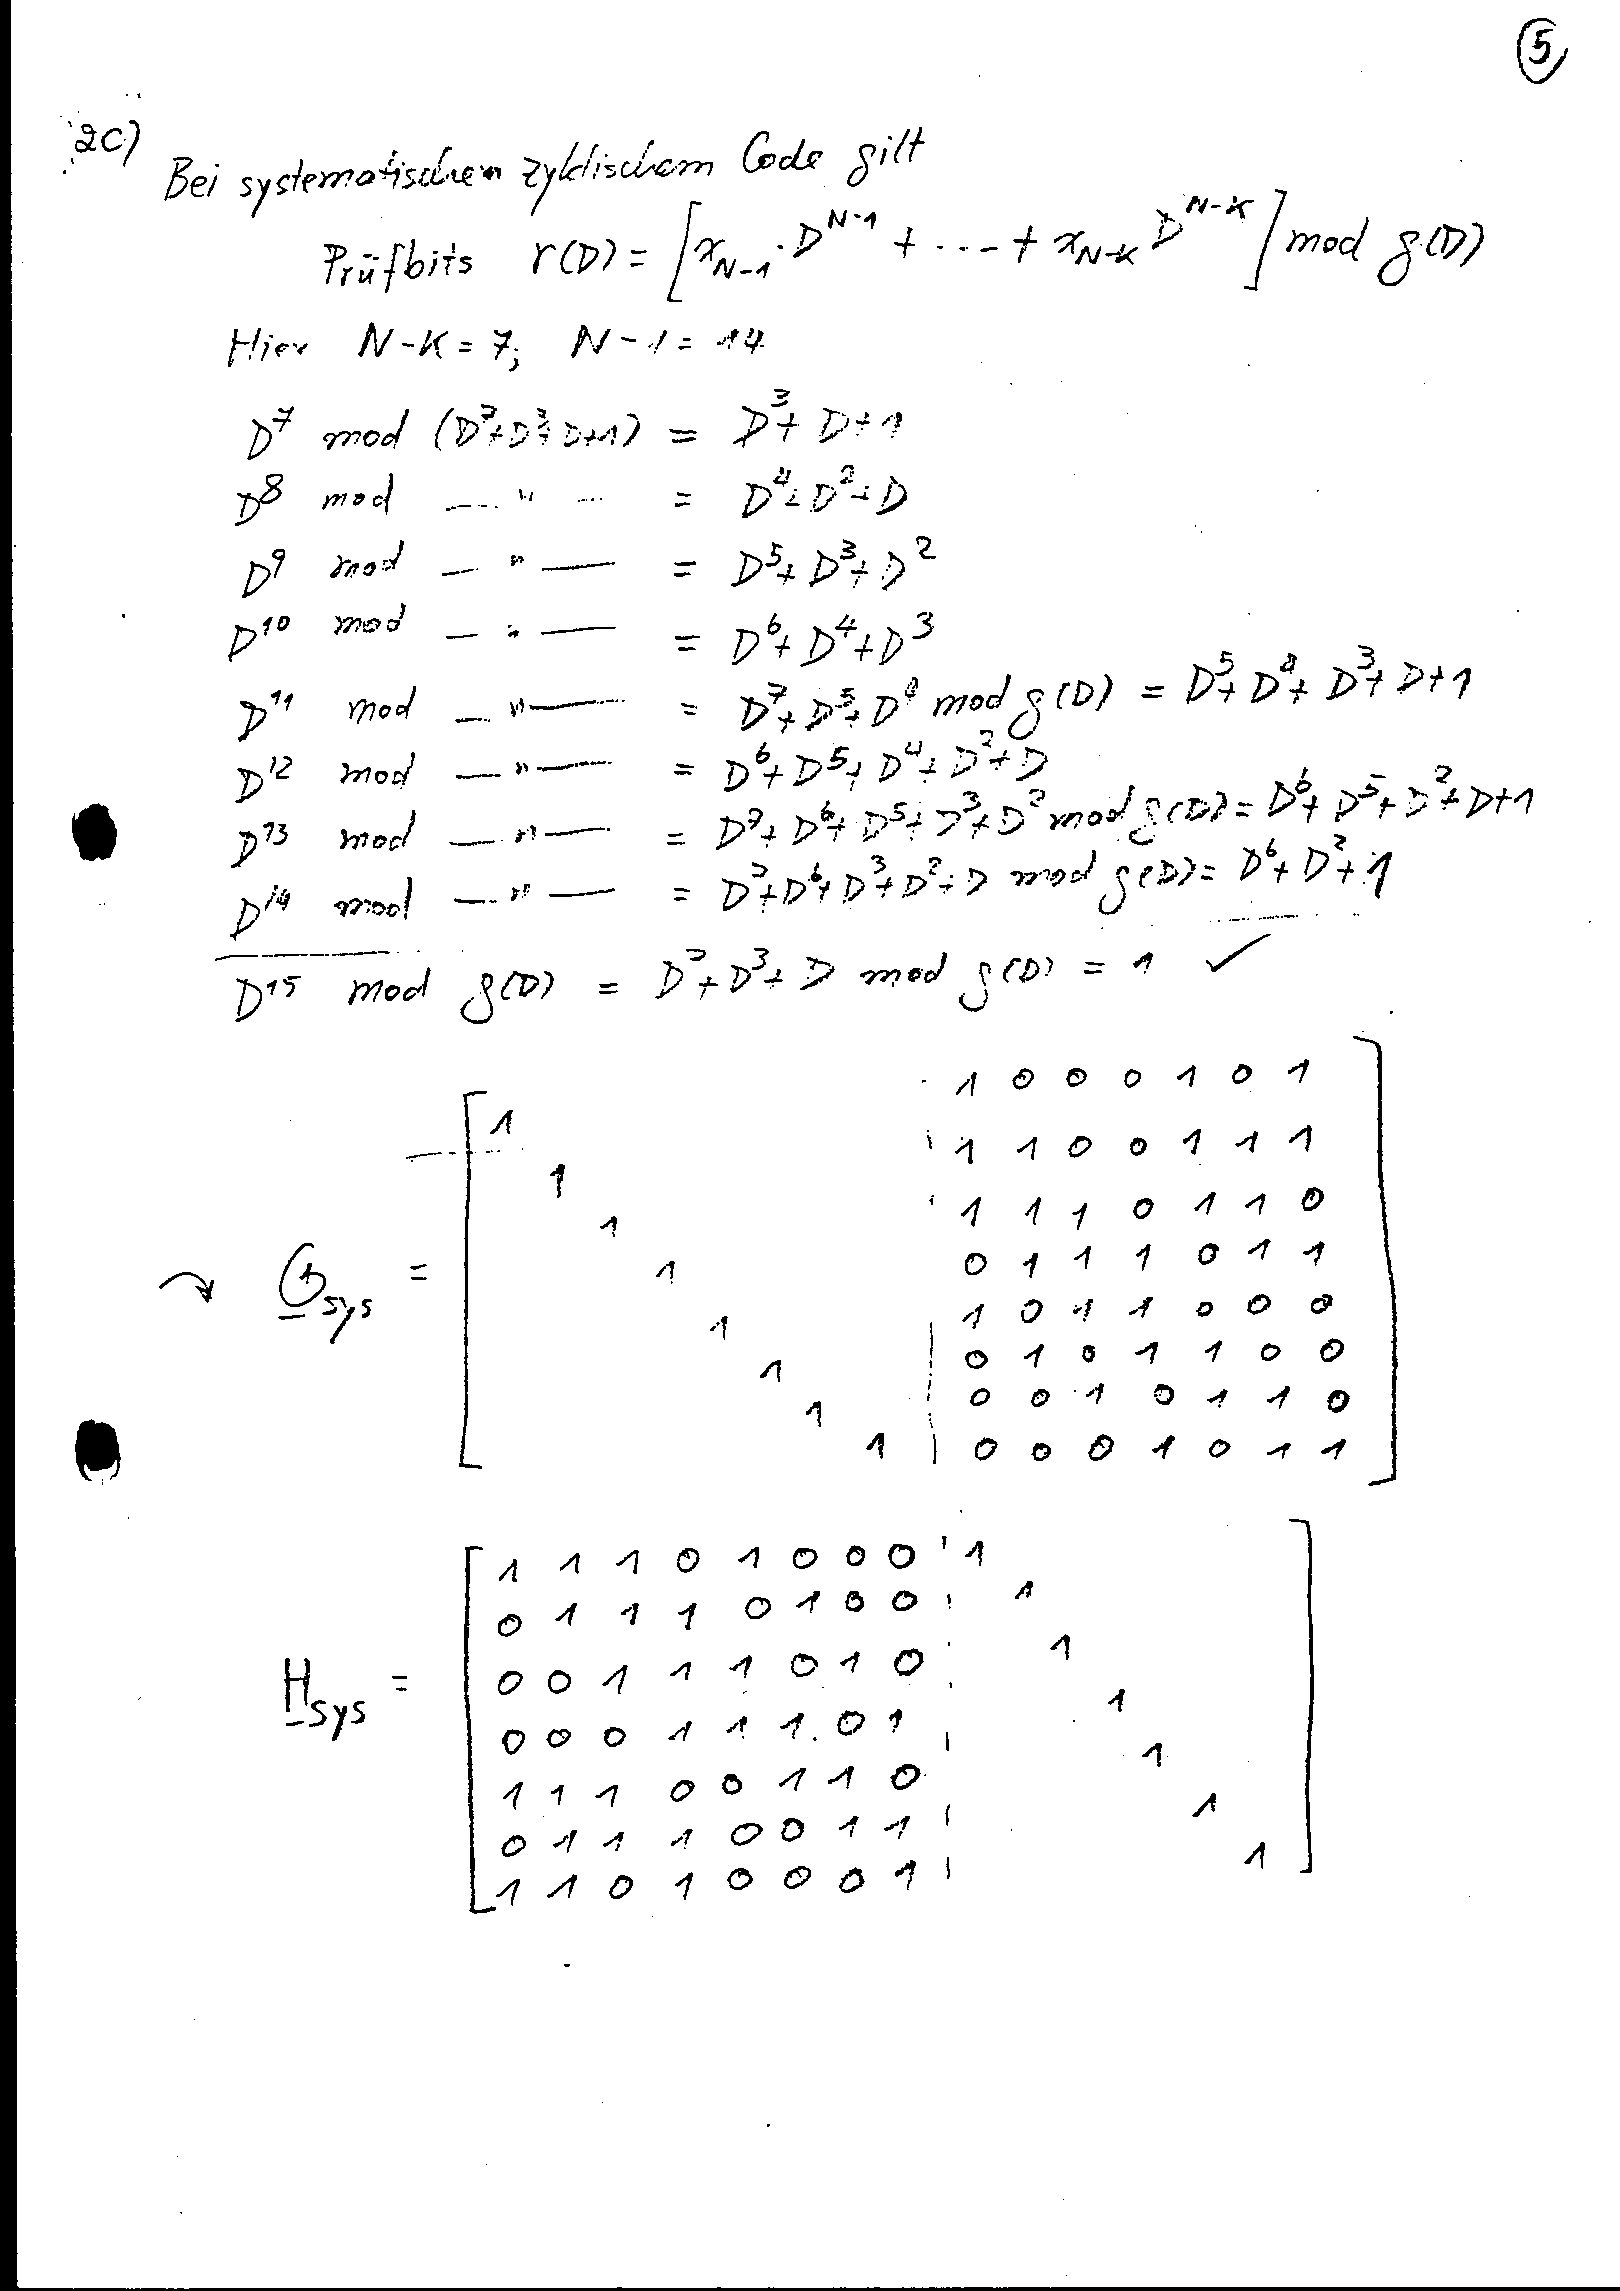 5
2c)
Bei systematischem zyklischem Code gilt
Prüfbits r(D) = [x_{N-1}·D^{N-1} + ---- + x_{N-K} D^{N-K}] mod g(D)
Hier N-K = 7; N-1 = 14
D^7 mod (D^7+D^3+D+1) = D^3+D+1
D^8 mod —"— = D^4+D^2+D
D^9 mod —"— = D^5+D^3+D^2
D^10 mod —"— = D^6+D^4+D^3
D^11 mod —"— = D^7+D^5+D^4 mod g(D) = D^5+D^4+D^3+D+1
D^12 mod —"— = D^6+D^5+D^4+D^2+D
D^13 mod —"— = D^7+D^6+D^5+D^3+D^2 mod g(D) = D^6+D^5+D^2+D+1
D^14 mod —"— = D^7+D^6+D^3+D^2+D mod g(D) = D^6+D^2+1
D^15 mod g(D) = D^7+D^3+D mod g(D) = 1 ✓
1 1 0 0 0 1 0 1
1 1 1 0 0 1 1 1
1 1 1 1 0 1 1 0
↷ G_sys = 1 0 1 1 1 0 1 1
1 1 0 1 1 0 0 0
1 0 1 0 1 1 0 0
1 0 0 1 0 1 1 0
1 0 0 0 1 0 1 1
1 1 1 0 1 0 0 0 1
0 1 1 1 0 1 0 0 1
0 0 1 1 1 0 1 0 1
H_sys = 0 0 0 1 1 1 0 1 1
1 1 1 0 0 1 1 0 1
0 1 1 1 0 0 1 1 1
1 1 0 1 0 0 0 1 1